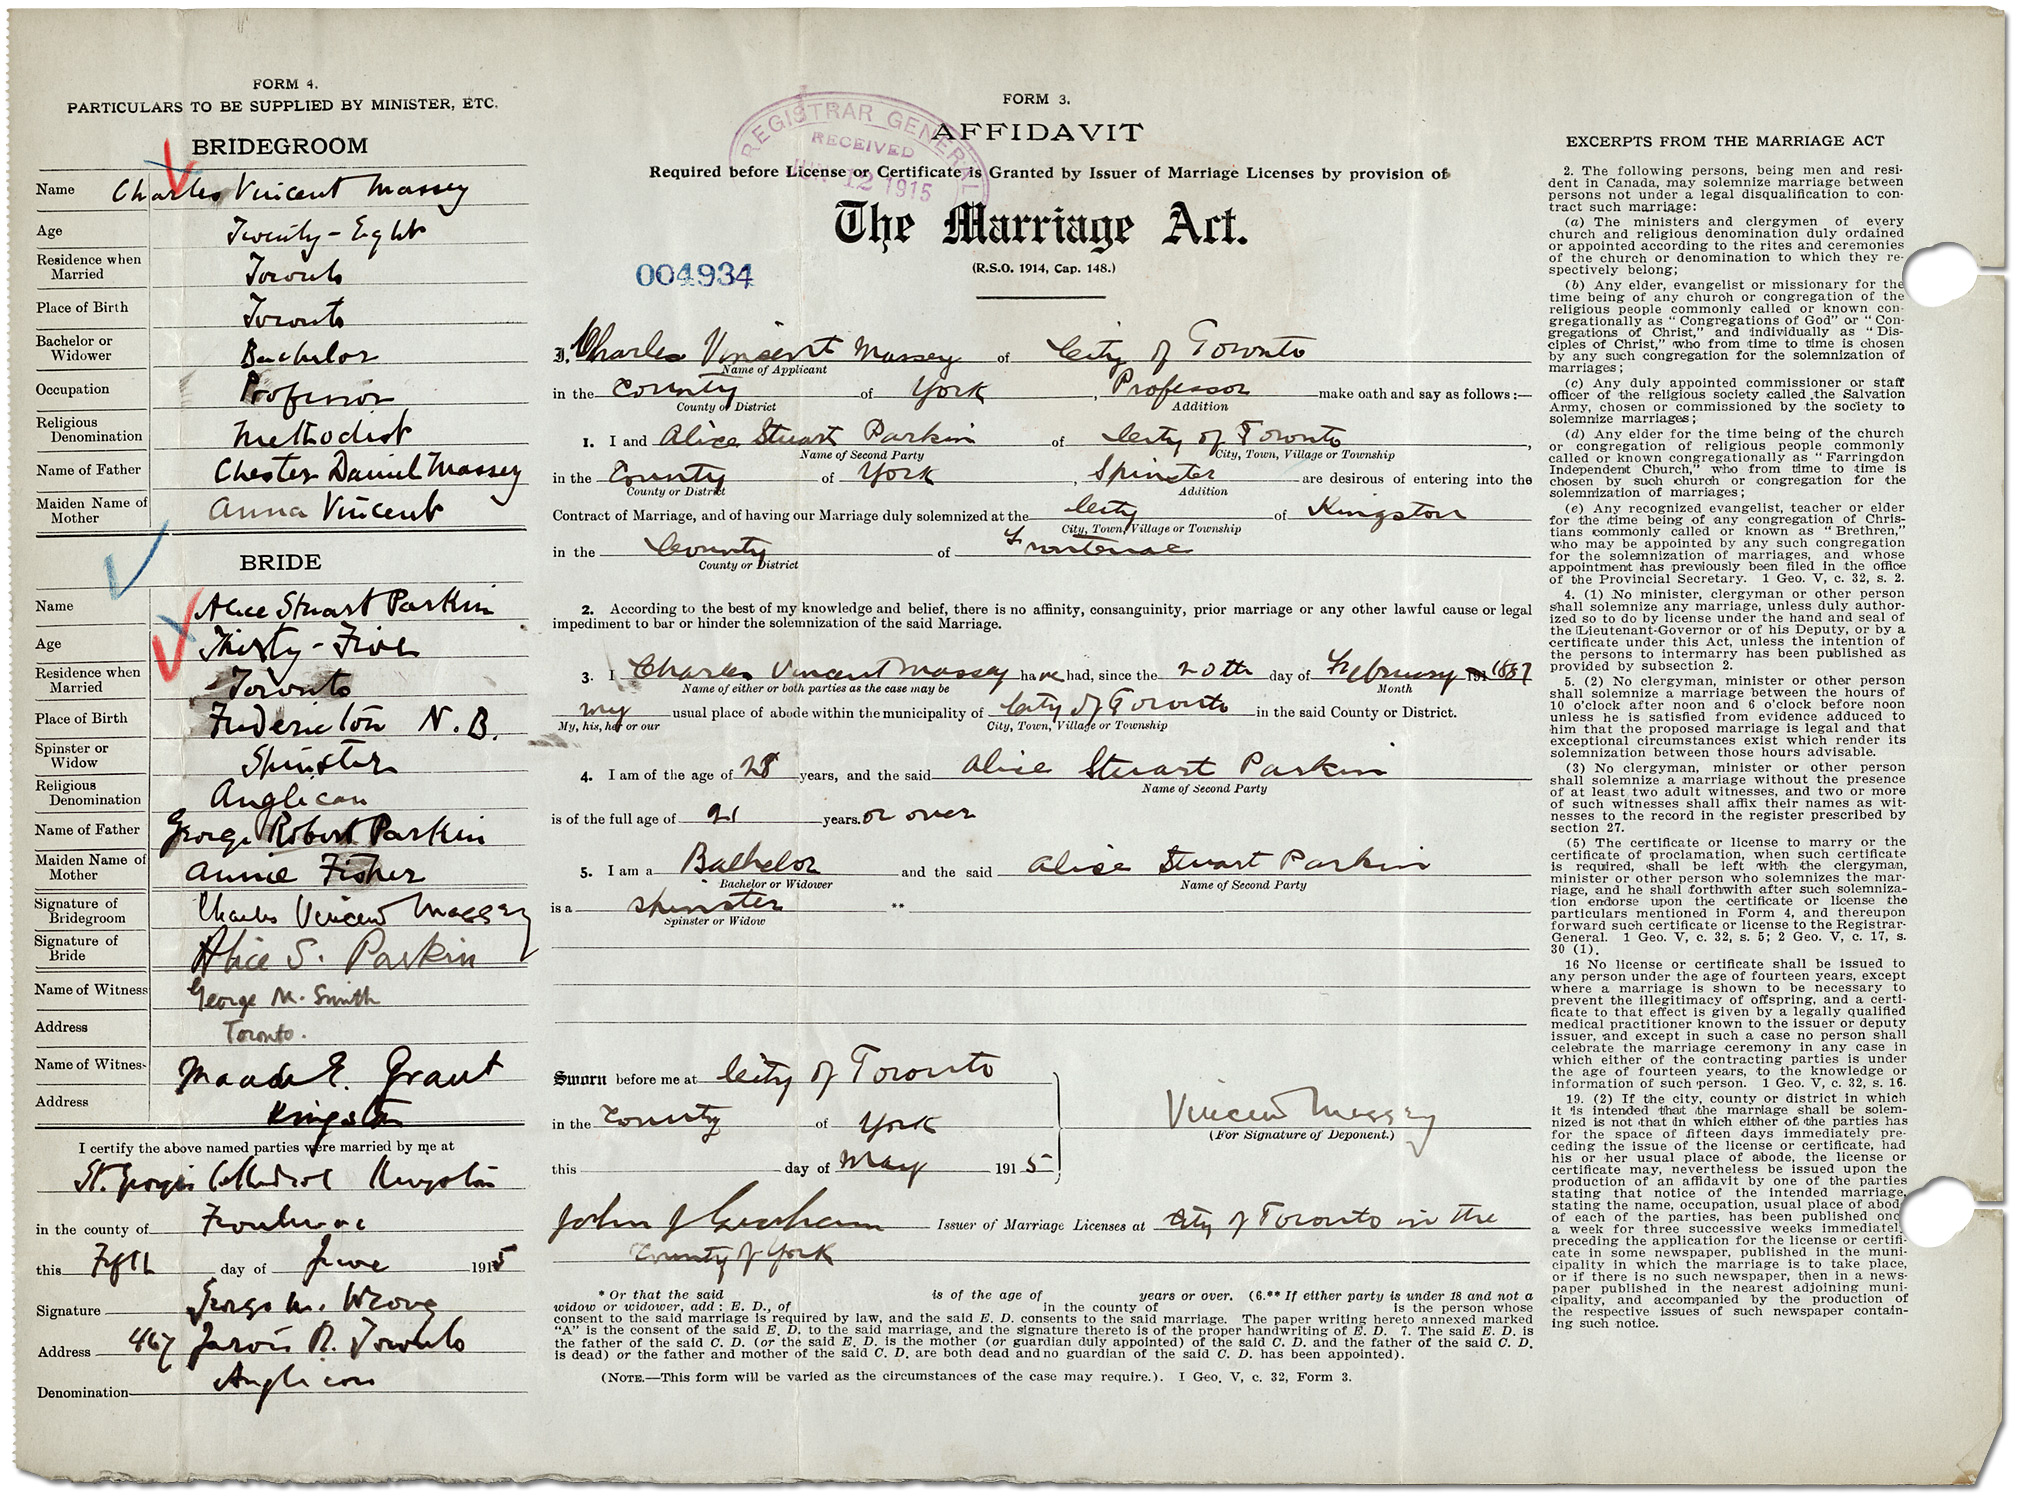 FORM 4.
PARTICULARS TO BE SUPPLIED BY MINISTER, ETC.
BRIDEGROOM
Name Charles Vincent Massey
Age Twenty-Eight
Residence when Married Toronto
Place of Birth Toronto
Bachelor or Widower Bachelor
Occupation Professor
Religious Denomination Methodist
Name of Father Chester Daniel Massey
Maiden Name of Mother Anna Vincent
BRIDE
Name Alice Stuart Parkin
Age Thirty-Five
Residence when Married Toronto
Place of Birth Fredericton N.B.
Spinster or Widow Spinster
Religious Denomination Anglican
Name of Father George Robert Parkin
Maiden Name of Mother Annie Fisher
Signature of Bridegroom Charles Vincent Massey
Signature of Bride Alice S. Parkin
Name of Witness George M. Smith
Address Toronto.
Name of Witness Maude E. Grant
Address Kingston
I certify the above named parties were married by me at
St. George's Cathedral Kingston
in the county of Frontenac
this Fifth day of June 1915
Signature George M. Wrong
Address 467 Jarvis St. Toronto
Denomination Anglican
REGISTRAR GENERAL
RECEIVED
JUN 12 1915
FORM 3.
AFFIDAVIT
Required before License or Certificate is Granted by Issuer of Marriage Licenses by provision of
The Marriage Act.
(R.S.O. 1914, Cap. 148.)
004934
I, Charles Vincent Massey of City of Toronto
Name of Applicant
in the County of York, Professor make oath and say as follows:—
County or District Addition
1. I and Alice Stuart Parkin of City of Toronto,
Name of Second Party City, Town, Village or Township
in the County of York, Spinster are desirous of entering into the
County or District Addition
Contract of Marriage, and of having our Marriage duly solemnized at the City of Kingston
City, Town, Village or Township
in the County of Frontenac
County or District
2. According to the best of my knowledge and belief, there is no affinity, consanguinity, prior marriage or any other lawful cause or legal
impediment to bar or hinder the solemnization of the said Marriage.
3. I Charles Vincent Massey have had, since the 20th day of February 191 1887
Name of either or both parties as the case may be Month
my usual place of abode within the municipality of City of Toronto in the said County or District.
My, his, her or our City, Town, Village or Township
4. I am of the age of 28 years, and the said Alice Stuart Parkin
Name of Second Party
is of the full age of 21 years. or over
5. I am a Bachelor and the said Alice Stuart Parkin
Bachelor or Widower Name of Second Party
is a spinster **
Spinster or Widow
Sworn before me at City of Toronto
in the County of York
this day of May 1915
Vincent Massey
(For Signature of Deponent.)
John J Graham Issuer of Marriage Licenses at City of Toronto in the
County of York
* Or that the said is of the age of years or over. (6.** If either party is under 18 and not a
widow or widower, add: E. D., of in the county of is the person whose
consent to the said marriage is required by law, and the said E. D. consents to the said marriage. The paper writing hereto annexed marked
"A" is the consent of the said E. D. to the said marriage, and the signature thereto is of the proper handwriting of E. D. 7. The said E. D. is
the father of the said C. D. (or the said E. D. is the mother (or guardian duly appointed) of the said C. D. and the father of the said C. D.
is dead) or the father and mother of the said C. D. are both dead and no guardian of the said C. D. has been appointed).
(NOTE.—This form will be varied as the circumstances of the case may require.). I Geo. V, c. 32, Form 3.
EXCERPTS FROM THE MARRIAGE ACT
2. The following persons, being men and resi-
dent in Canada, may solemnize marriage between
persons not under a legal disqualification to con-
tract such marriage:
(a) The ministers and clergymen of every
church and religious denomination duly ordained
or appointed according to the rites and ceremonies
of the church or denomination to which they re-
spectively belong;
(b) Any elder, evangelist or missionary for the
time being of any church or congregation of the
religious people commonly called or known con-
gregationally as "Congregations of God" or "Con-
gregations of Christ," and individually as "Dis-
ciples of Christ," who from time to time is chosen
by any such congregation for the solemnization of
marriages;
(c) Any duly appointed commissioner or staff
officer of the religious society called the Salvation
Army, chosen or commissioned by the society to
solemnize marriages;
(d) Any elder for the time being of the church
or congregation of religious people commonly
called or known congregationally as "Farringdon
Independent Church," who from time to time is
chosen by such church or congregation for the
solemnization of marriages;
(e) Any recognized evangelist, teacher or elder
for the time being of any congregation of Chris-
tians commonly called or known as "Brethren,"
who may be appointed by any such congregation
for the solemnization of marriages, and whose
appointment has previously been filed in the office
of the Provincial Secretary. 1 Geo. V, c. 32, s. 2.
4. (1) No minister, clergyman or other person
shall solemnize any marriage, unless duly author-
ized so to do by license under the hand and seal of
the Lieutenant-Governor or of his Deputy, or by a
certificate under this Act, unless the intention of
the persons to intermarry has been published as
provided by subsection 2.
5. (2) No clergyman, minister or other person
shall solemnize a marriage between the hours of
10 o'clock after noon and 6 o'clock before noon
unless he is satisfied from evidence adduced to
him that the proposed marriage is legal and that
exceptional circumstances exist which render its
solemnization between those hours advisable.
(3) No clergyman, minister or other person
shall solemnize a marriage without the presence
of at least two adult witnesses, and two or more
of such witnesses shall affix their names as wit-
nesses to the record in the register prescribed by
section 27.
(5) The certificate or license to marry or the
certificate of proclamation, when such certificate
is required, shall be left with the clergyman,
minister or other person who solemnizes the mar-
riage, and he shall forthwith after such solemniza-
tion endorse upon the certificate or license the
particulars mentioned in Form 4, and thereupon
forward such certificate or license to the Registrar-
General. 1 Geo. V, c. 32, s. 5; 2 Geo. V, c. 17, s.
30 (1).
16 No license or certificate shall be issued to
any person under the age of fourteen years, except
where a marriage is shown to be necessary to
prevent the illegitimacy of offspring, and a certi-
ficate to that effect is given by a legally qualified
medical practitioner known to the issuer or deputy
issuer, and except in such a case no person shall
celebrate the marriage ceremony in any case in
which either of the contracting parties is under
the age of fourteen years, to the knowledge or
information of such person. 1 Geo. V, c. 32, s. 16.
19. (2) If the city, county or district in which
it is intended that the marriage shall be solem-
nized is not that in which either of the parties has
for the space of fifteen days immediately pre-
ceding the issue of the license or certificate, had
his or her usual place of abode, the license or
certificate may, nevertheless be issued upon the
production of an affidavit by one of the parties
stating that notice of the intended marriage,
stating the name, occupation, usual place of abod
of each of the parties, has been published onc
a week for three successive weeks immediatel
preceding the application for the license or certifi-
cate in some newspaper, published in the muni-
cipality in which the marriage is to take place,
or if there is no such newspaper, then in a news-
paper published in the nearest adjoining muni-
cipality, and accompanied by the production of
the respective issues of such newspaper contain-
ing such notice.